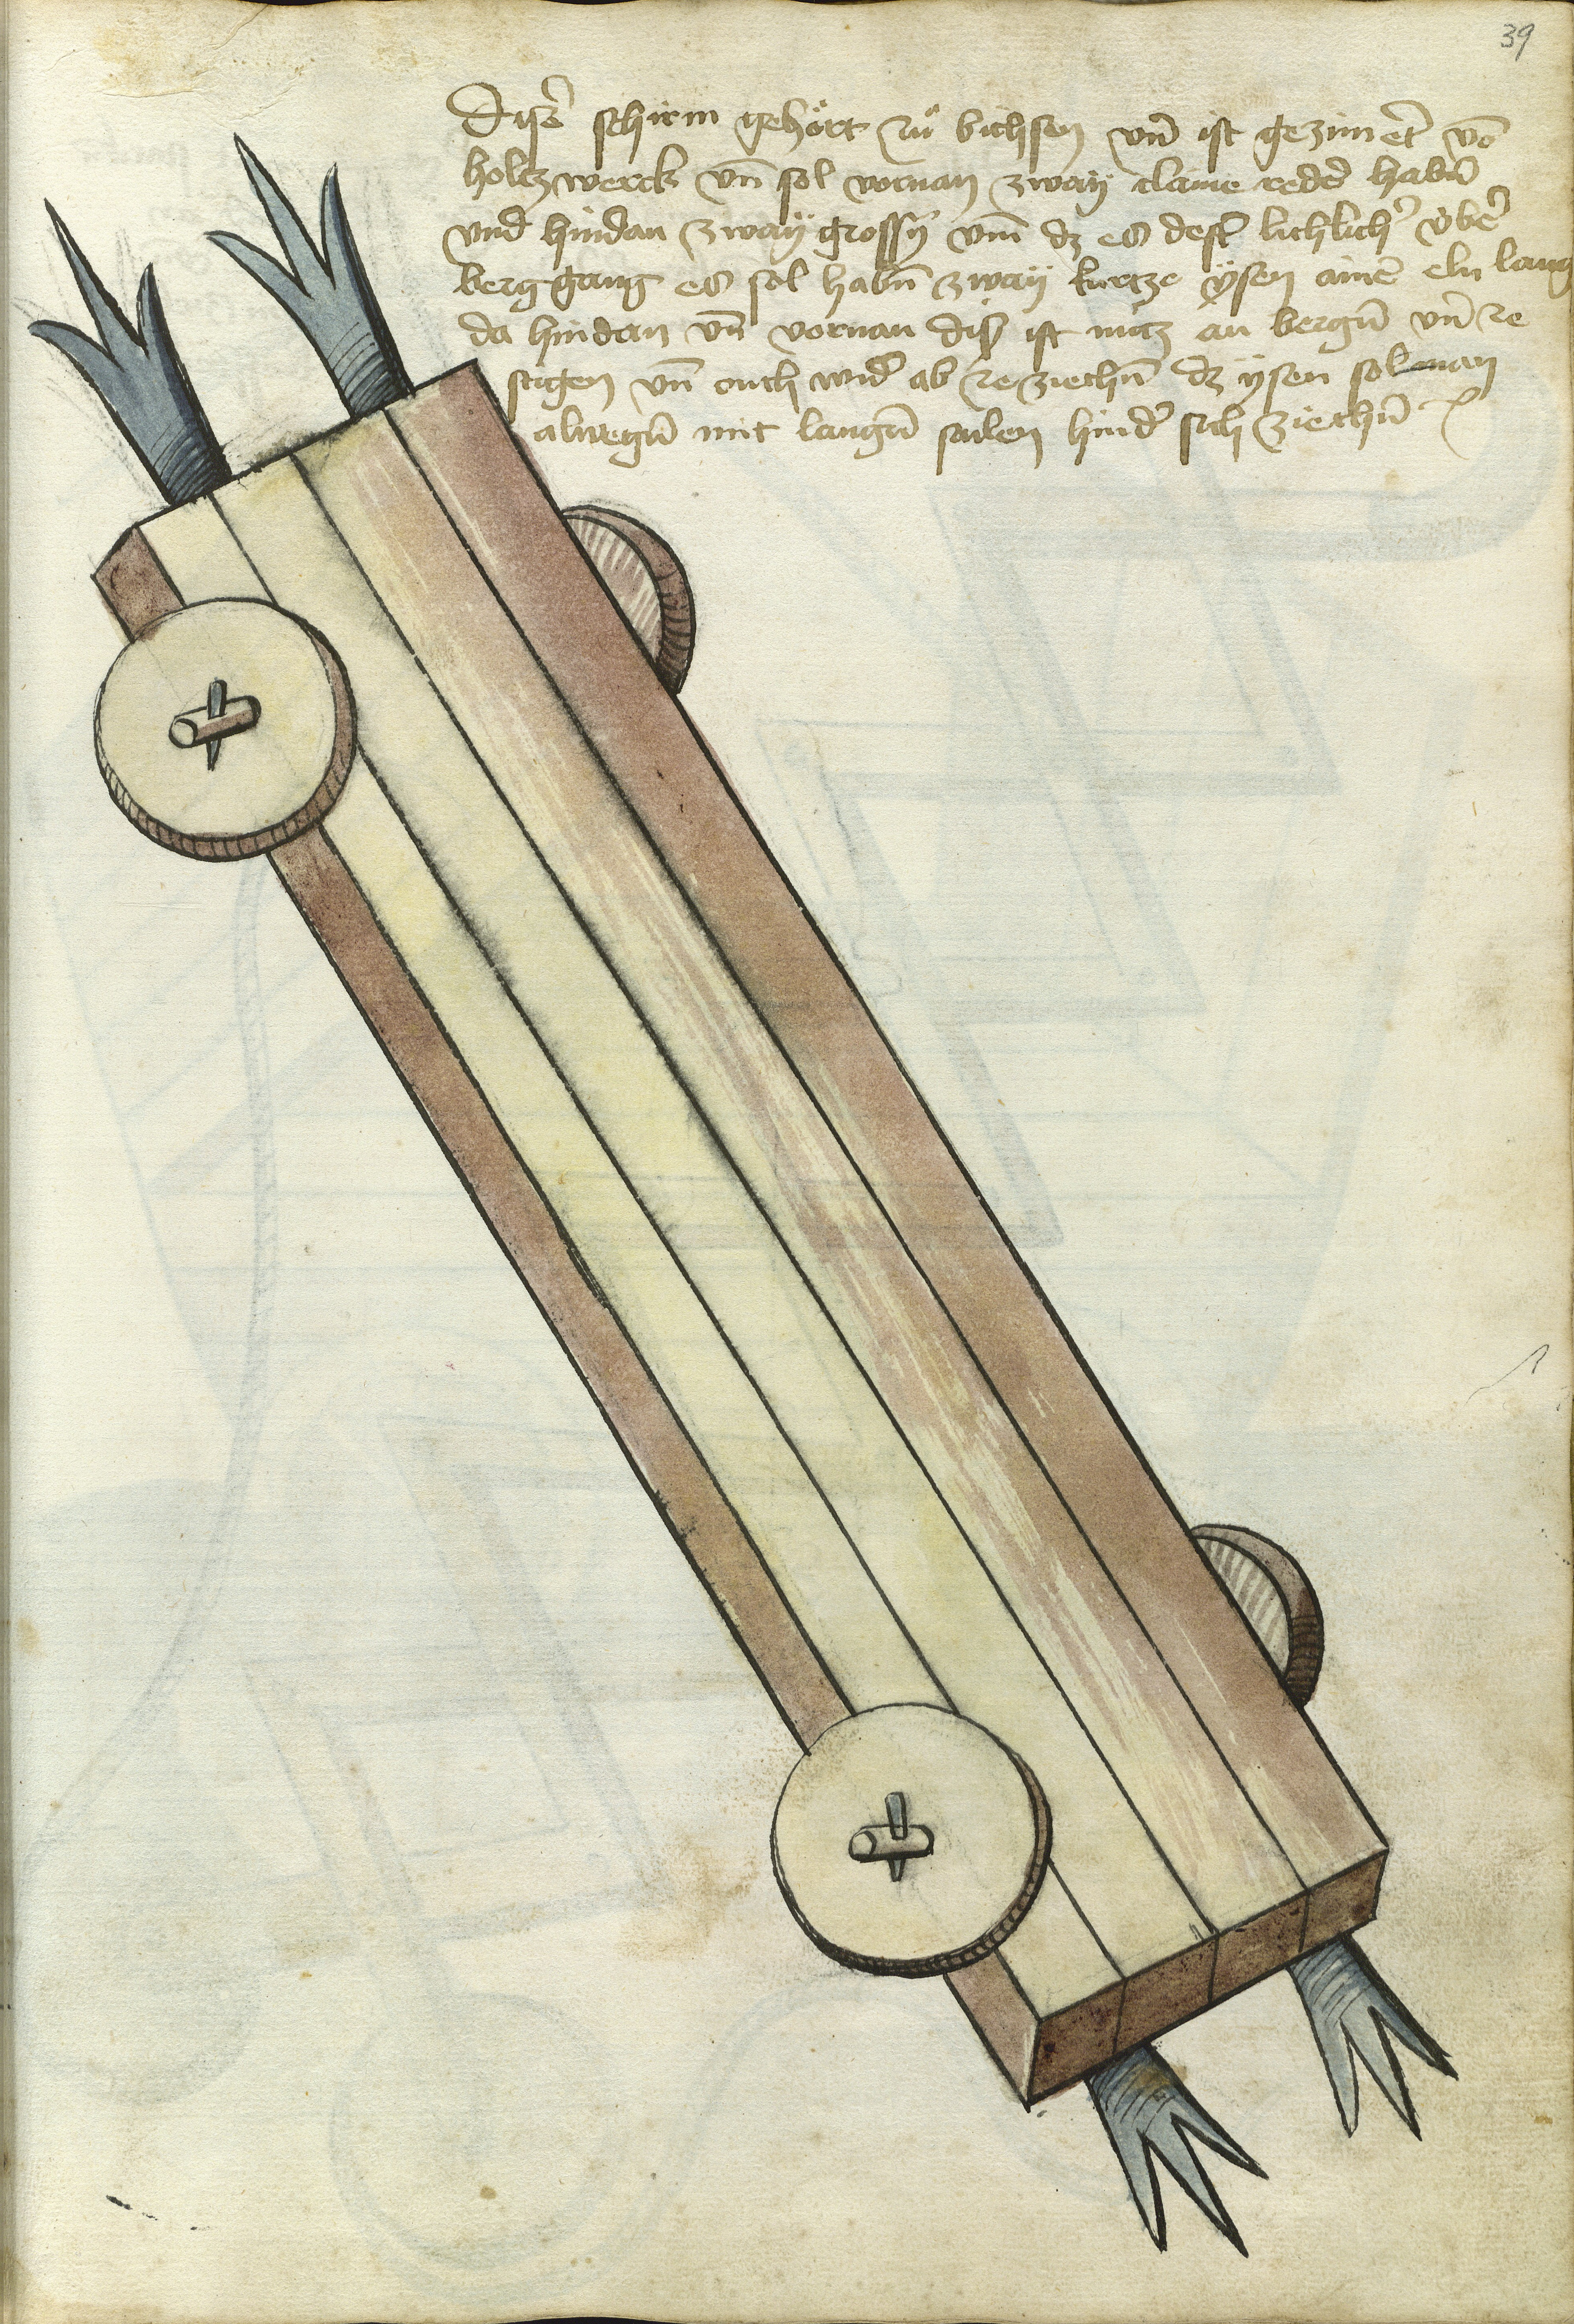 39
Diser̄ schirm gehört zuͦ bichsen vn̄ ist gezim̄ert vō
holtzwerck vn̄ sol vornan zway claine reder habn̄
vnd hindan zway grossy vm̄ dz es dest lichlicher v̈ber
berg gang es sol habn̄ zway kurtze ẏsen ainer eln lang
da hindan vn̄ vornan dis ist nutz an bergn̄ vn̄ ze
stigen vn̄ ouch wider ab ze ziechn̄ dz ysen sol man
alwegn̄ mit langn̄ sailen hinder sich ziechn̄